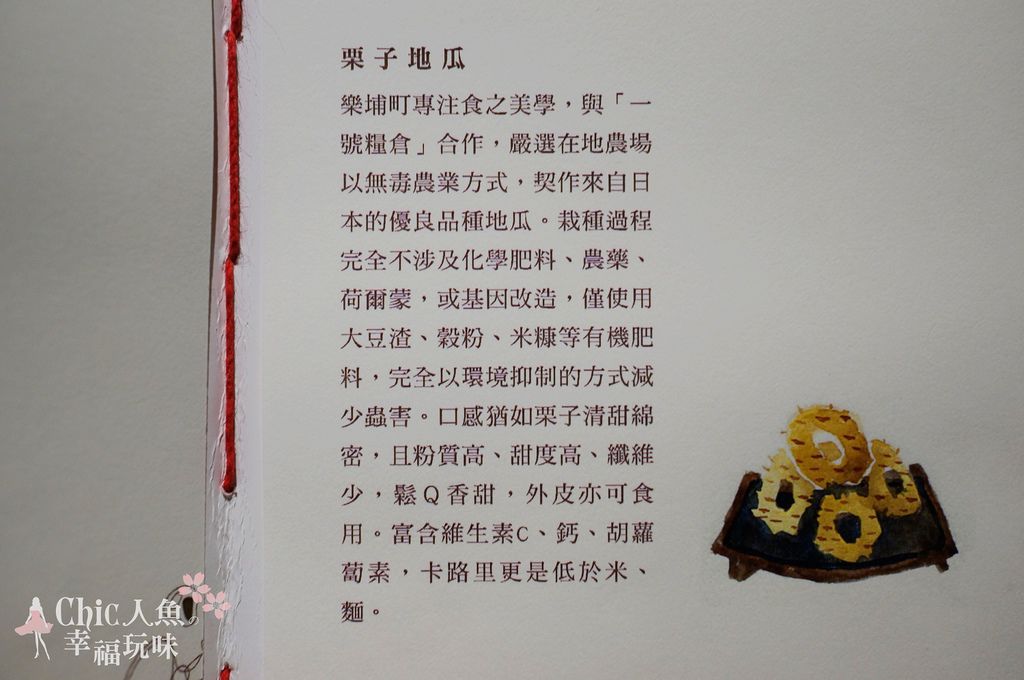 栗子地瓜
樂埔町專注食之美學，與「一
號糧倉」合作，嚴選在地農場
以無毒農業方式，契作來自日
本的優良品種地瓜。栽種過程
完全不涉及化學肥料、農藥、
荷爾蒙，或基因改造，僅使用
大豆渣、穀粉、米糠等有機肥
料，完全以環境抑制的方式減
少蟲害。口感猶如栗子清甜綿
密，且粉質高、甜度高、纖維
少，鬆Q香甜，外皮亦可食
用。富含維生素C、鈣、胡蘿
蔔素，卡路里更是低於米、
麵。
Chic人魚。
幸福玩味